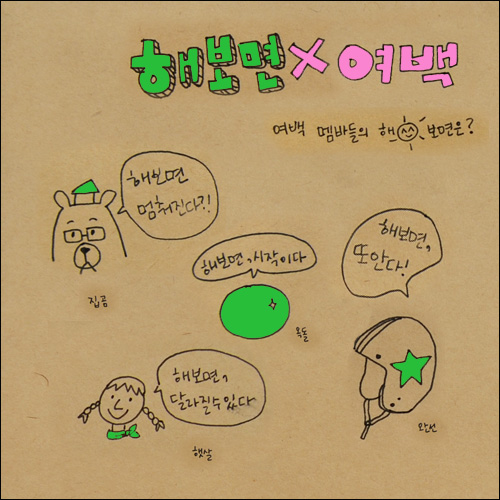 해보면 X 여백
여백 멤바들의 해 보면은?
해보면
멈춰진다?!
집곰
해보면, 시작이다
옥돌
해보면,
또안다!
완선
해보면,
달라질수있다
햇살